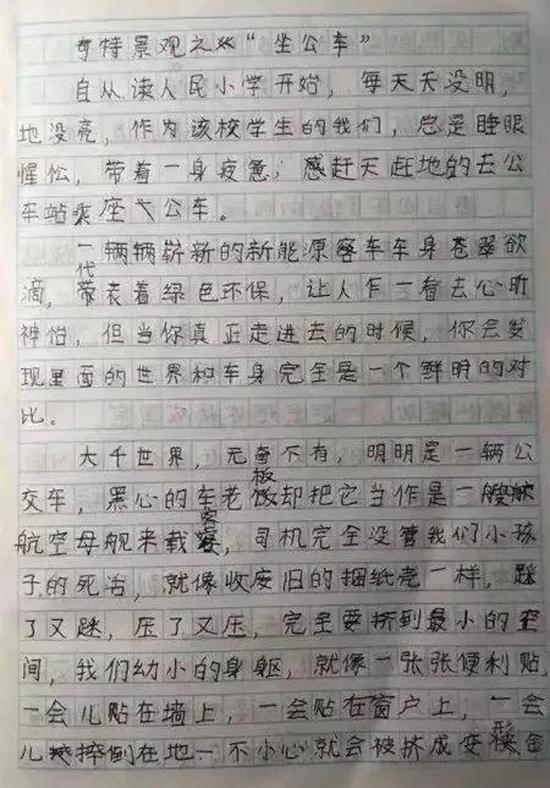 奇特景观之“坐公车”
自从读人民小学开始，每天天没明，
地没亮，作为该校学生的我们，总是睡眼
惺忪，带着一身疲惫，感赶天赶地的去公
车站乘座公车。
一辆辆崭新的新能源客车车身苍翠欲
滴，代表着绿色环保，让人乍一看去心旷
神怡，但当你真正走进去的时候，你会发
现里面的世界和车身完全是一个鲜明的对
比。
大千世界，无奇不有，明明是一辆公
交车，黑心的车老板却把它当作是一艘
航空母舰来载客，司机完全没管我们小孩
子的死活，就像收废旧的捆纸壳一样，踩
了又踩，压了又压，完全要挤到最小的空
间，我们幼小的身躯，就像一张张便利贴，
一会儿贴在墙上，一会贴在窗户上，一会
儿摔倒在地一不小心就会被挤成变形金